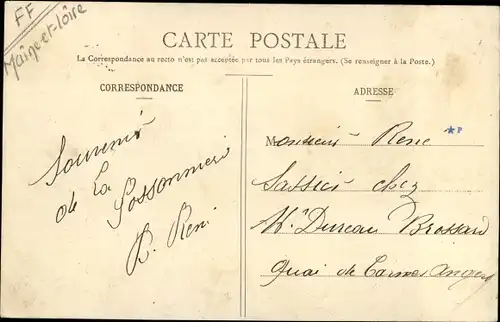 FF
Maine-et-Loire
CARTE POSTALE
La Correspondance au recto n'est pas acceptée par tous les Pays étrangers. (Se renseigner à la Poste.)
CORRESPONDANCE
Souvenir
de La
Possonnière
R. René
ADRESSE
Monsieur René
chez
Mr Dureau Brossard
Quai de Carmes Angers
*P